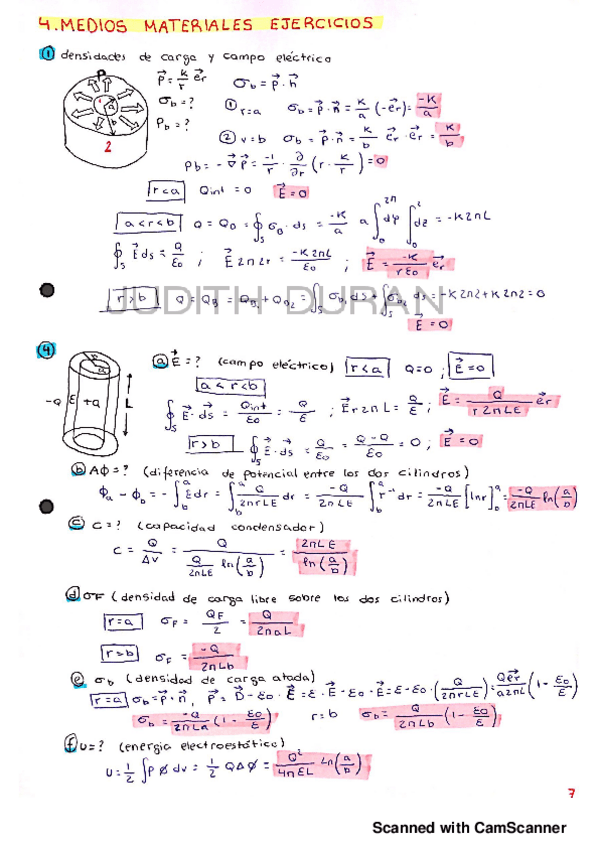 4. MEDIOS MATERIALES EJERCICIOS
① densidades de carga y campo eléctrico
P⃗ = K/r e⃗r   σb = p⃗ · n⃗
σb = ?   ① r=a   σb = p⃗ · n⃗ = K/a (-e⃗r) = -K/a
ρb = ?   ② r=b   σb = p⃗ · n⃗ = K/b e⃗r · e⃗r = K/b
ρb = -∇⃗ p⃗ = -1/r · ∂/∂r (r · K/r) = 0
r<a   Qint = 0   E⃗ = 0
a<r<b   Q = Q0 = ∮s σ0 · ds = -K/a a ∫0^2π dφ ∫0^L dz = -K2πL
∮s E⃗ ds = Q/ε0 ; E2πLr = -K2πL/ε0 ; E⃗ = -K/rε0 e⃗r
r>b   Q = QB = QB1 + QB2 = ∫∫s σb1 ds + ∫∫s σb2 ds = -K2πL + K2πL = 0
E⃗ = 0
JUDITH DURAN
④
-Q ε +Q L
ⓐ E⃗ = ? (campo eléctrico)   r<a   Q=0 ; E⃗=0
a<r<b
∮s E⃗ · ds⃗ = Qint/ε0 = Q/ε ; Er2πL = Q/ε ; E⃗ = Q/r2πLε e⃗r
r>b   ∮s E⃗ · ds⃗ = Q/ε0 = Q-Q/ε0 = 0 ; E⃗ = 0
ⓑ Δϕ = ? (diferencia de potencial entre los dos cilindros)
ϕa - ϕb = -∫b^a E⃗dr = ∫b^a Q/2πrLε dr = -Q/2πLε ∫b^a r⁻¹ dr = -Q/2πLε [lnr]b^a = -Q/2πLε ln(a/b)
ⓒ C = ? (capacidad condensador)
C = Q/ΔV = Q/(Q/2πLε ln(a/b)) = 2πLε/ln(a/b)
ⓓ σF (densidad de carga libre sobre los dos cilindros)
r=a   σF = QF/2 = Q/2πaL
r>b   σF = -Q/2πLb
ⓔ σb (densidad de carga atada)
r=a   σb = p⃗ · n⃗ , P⃗ = D⃗ - ε0 · E⃗ = ε · E⃗ - ε0 · E⃗ = ε-ε0 · (Q/2πrLε) = Qe⃗r/a2πL (1 - ε0/ε)
σb = -Q/2πLa (1 - ε0/ε)   r=b   σb = Q/2πLb (1 - ε0/ε)
ⓕ U = ? (energia electroestática)
U = 1/2 ∫ρ ϕ dv = 1/2 QΔϕ = Q²/4πεL Ln(a/b)
7
Scanned with CamScanner